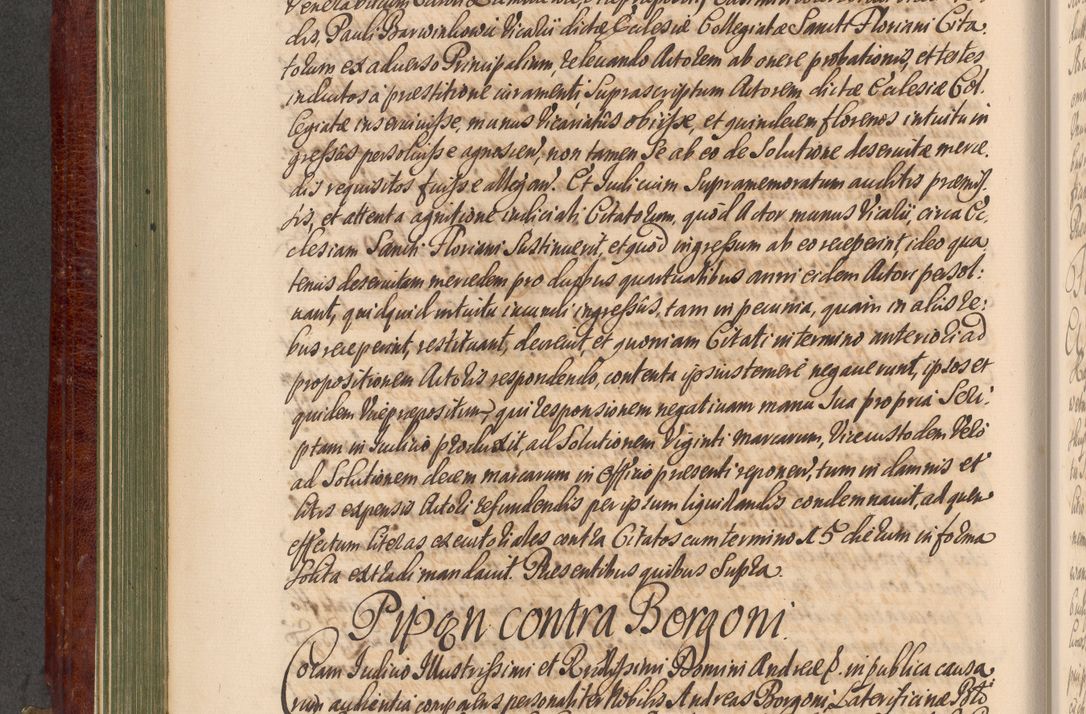 dis, Pauli Barwinkowic Vicarii dictæ Ecclesiæ Collegiatæ Sancti Floriani Cita:
torum ex adverso Principalium, relevando Actorem ab onere probationis, et testes
inductos à præstitione iuramenti, Suprascriptum Actorem dictæ Ecclesiæ Col
legiatæ inserviuisse, munus Vicariatûs obiisse, et quindecem florenos intuitu in
gressûs persoluisse agnoscen, non tamen Se ab eo de Solutione deservitæ merce
dis requisitos fuisse allegan. Et Iudicium Supramemoratum auditis præmis
sis, et attenta agnitione iudiciali Citatorum, quòd Actor munus Vicarii circa Ec
clesiam Sancti Floriani Sustinuerit, et quòd ingressum ab eo receperint ideo qua
tenus deservitam mercedem pro duobus quartualibus anni eidem Actori persol:
vant, quidquid intuitu iucundi ingressûs, tam in pecunia, quam in aliis re:
bus receperint, restituant, decrevit, et quoniam Citati in termino anteriori ad
propositionem Actoris respondendo, contenta ipsius temerè negaverunt, ipsos et
quidem Vicepræpositum, qui responsionem negativam manu Sua propria Scri
ptam in Iudicio produxit, ad Solutionem Viginti marcarum, Vicecustodem Verò
ad Solutionem decem marcarum in Officio præsenti reponen, tum in damnis et
litis expensis Actori refundendis per ipsum liquidandis condemnavit, ad quem
effectum literas executoriales contra Citatos cum termino X 5 dierum in forma
Solita extradi mandavit. Præsentibus quibus Supra.
Pipan contra Borgoni.
Coram Iudicio Illustrissimi et Reverendissimi Domini Andreæ P. in publica causa
rum audientia comparens personaliter Nobilis Andreas Borgoni Laterificinæ